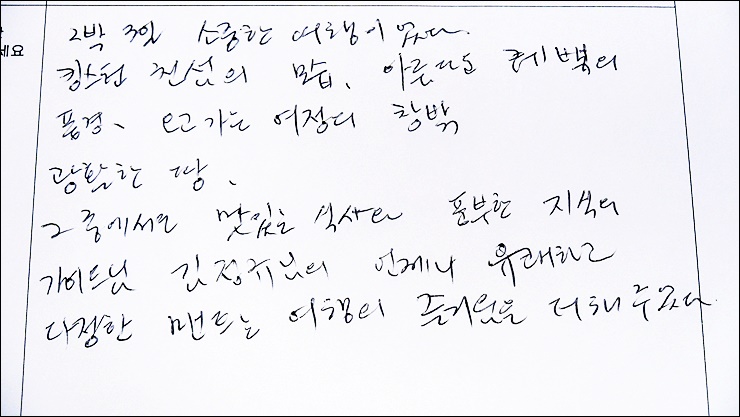 세요
2박 3일 소중한 여행이었다.
킹스턴 천섬의 모습, 아름다운 퀘벡의
풍경, 오고 가는 여정의 창밖
광활한 땅,
그 중에서도 맛있는 식사와 풍부한 지식의
가이드님 김정귀님의 언제나 유쾌하고
다정한 멘트는 여행의 즐거움을 더해 주었다.